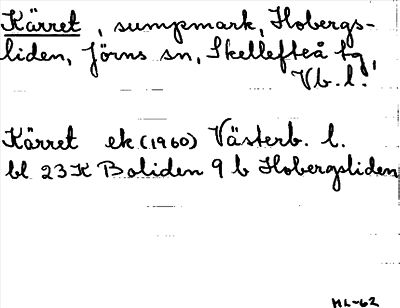 Kärret, sumpmark, Hobergs-
liden, Jörns sn, Skellefteå tg,
Vb. l.
Kärret ek (1960) Västerb. l.
bl 23K Boliden 9 b Hobergsliden
ML-62